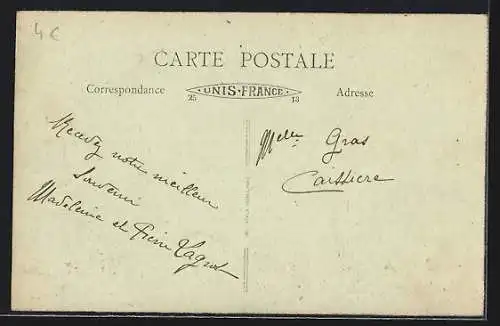 4€
CARTE POSTALE
Correspondance
UNIS-FRANCE
25
13
Adresse
Recevez notre meilleur
souvenir
Madeleine et Pierre
Melle Gras
Caissiere